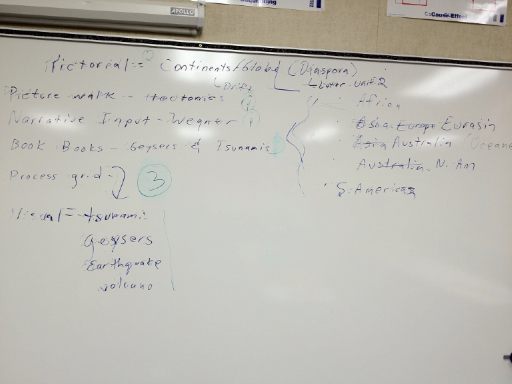 APOLLO
Cause-Effect
Pictorial = Continents/Global (Diaspora)
Later unit 2
Picture walk -
Narrative Input - Wegner
Book Books - Geysers & Tsunamis
Process grid
3
Visual = tsunami
geysers
Earthquake
volcano
Africa
Asia Europe Eurasia
Asia Australia (Oceana
Australia N. Am
S. America